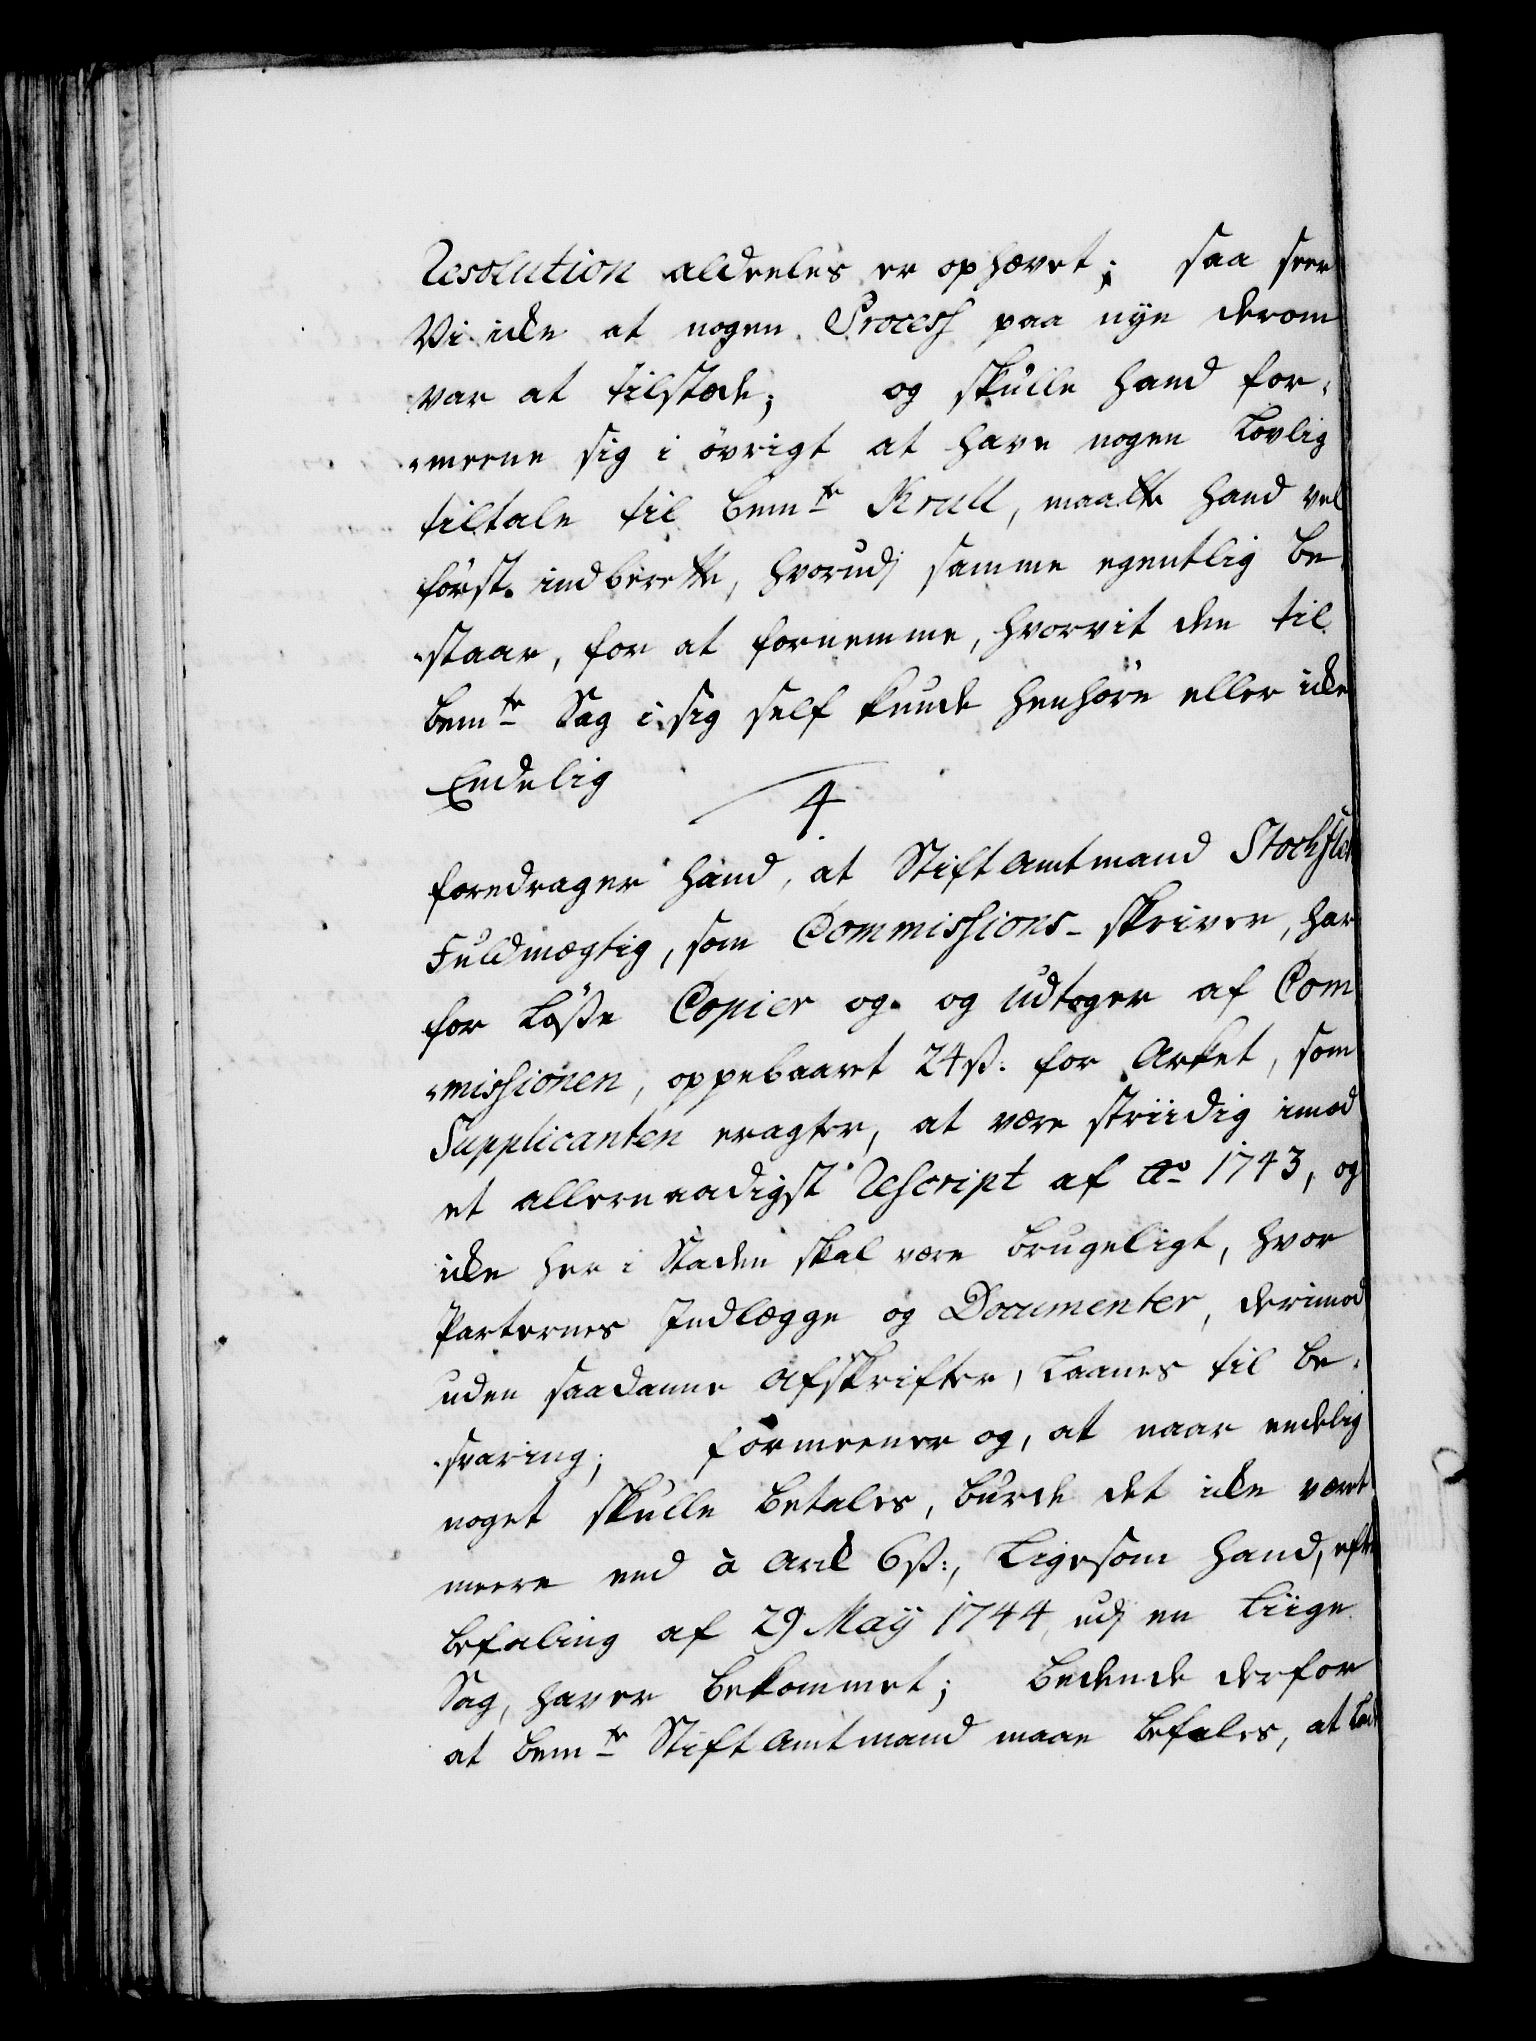 Resolution aldeeles er ophævet; saa seer
Vi icke at nogen Process paa nye derom
var at tilstæde; og skulle hand for-
meene sig i øvrigt at have nogen Lovlig
tiltale til bemte Krull, maatte hand vel
først indberette, hvorudj samme egentlig be-
staar, for at fornemme, hvorvit den til
bemte Sag i sig self kunde henhøre eller icke
Endelig
4
foredrager hand, at Stiftamtmand
Fuldmægtig, som Commissions-skriver, har
for Løsse Copier og og udtoger af Com
missionen, oppebaaret 24 ß. for Arket, som
Supplicanten eragter, at være striidig imod
et allernaadigst Rescript af Ao 1743, og
icke her i Staden skal være brugeligt, hvor
Parternes Indlægge og Documenter, derimod
uden saadanne Afskrifter, Laanes til be-
svaring; formeener og, at naar endelig
noget skulle betales, burde det icke været
meere end à Arck 6 ß:, Ligesom hand, efter
befaling af 29 May 1744 udj en Liige
Sag, haver bekommet; bedende derfor
at bemte Stiftamtmand maae befales, at